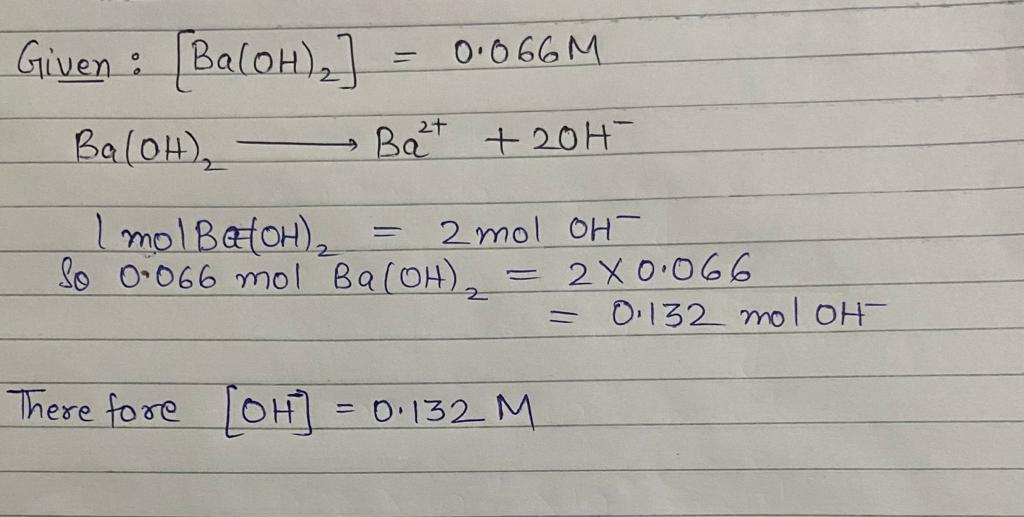 Given : [Ba(OH)₂] = 0.066M
Ba(OH)₂ ⟶ Ba²⁺ + 2OH⁻
1 mol Ba(OH)₂ = 2 mol OH⁻
So 0.066 mol Ba(OH)₂ = 2 X 0.066
= 0.132 mol OH⁻
There fore [OH⁻] = 0.132 M